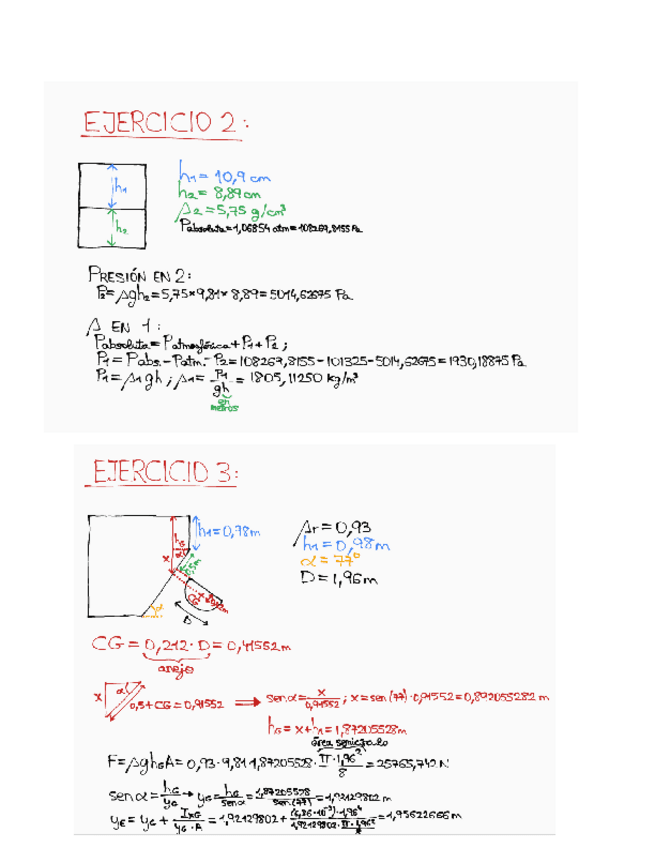 EJERCICIO 2:
h₁ = 10,9 cm
h₂ = 8,89 cm
ρ₂ = 5,75 g/cm³
Pabsoluta = 1,06854 atm = 108269,8155 Pa
h₁
h₂
PRESIÓN EN 2:
P₂ = ρgh₂ = 5,75 × 9,81 × 8,89 = 5014,62675 Pa
ρ EN 1:
Pabsoluta = Patmosférica + P₁ + P₂ ;
P₁ = Pabs. - Patm. - P₂ = 108269,8155 - 101325 - 5014,62675 = 1930,18875 Pa
P₁ = ρ₁gh ; ρ₁ = P₁/gh = 1805,11250 kg/m³
en metros
EJERCICIO 3:
h₁ = 0,98m
ρr = 0,93
h₁ = 0,98m
α = 77º
D = 1,96m
hG
α
x
0,5m
CG
α
D
CG = 0,212 · D = 0,41552m
anejo
x
α
0,5 + CG = 0,91552
sen α = x/0,91552 ; x = sen(77) · 0,91552 = 0,892055282 m
hG = x + h₁ = 1,87205528m
área semicírculo
F = ρghGA = 0,93 · 9,81 · 1,87205528 · π · 1,96²/8 = 25765,742 N
sen α = hG/yG → yG = hG/sen α = 1,87205528/sen(77) = 1,92129802 m
yE = yG + IxG/yG · A = 1,92129802 + (6,86 · 10⁻³) · 1,96⁴/1,92129802 · π · 1,96²/8 = 1,95622666 m